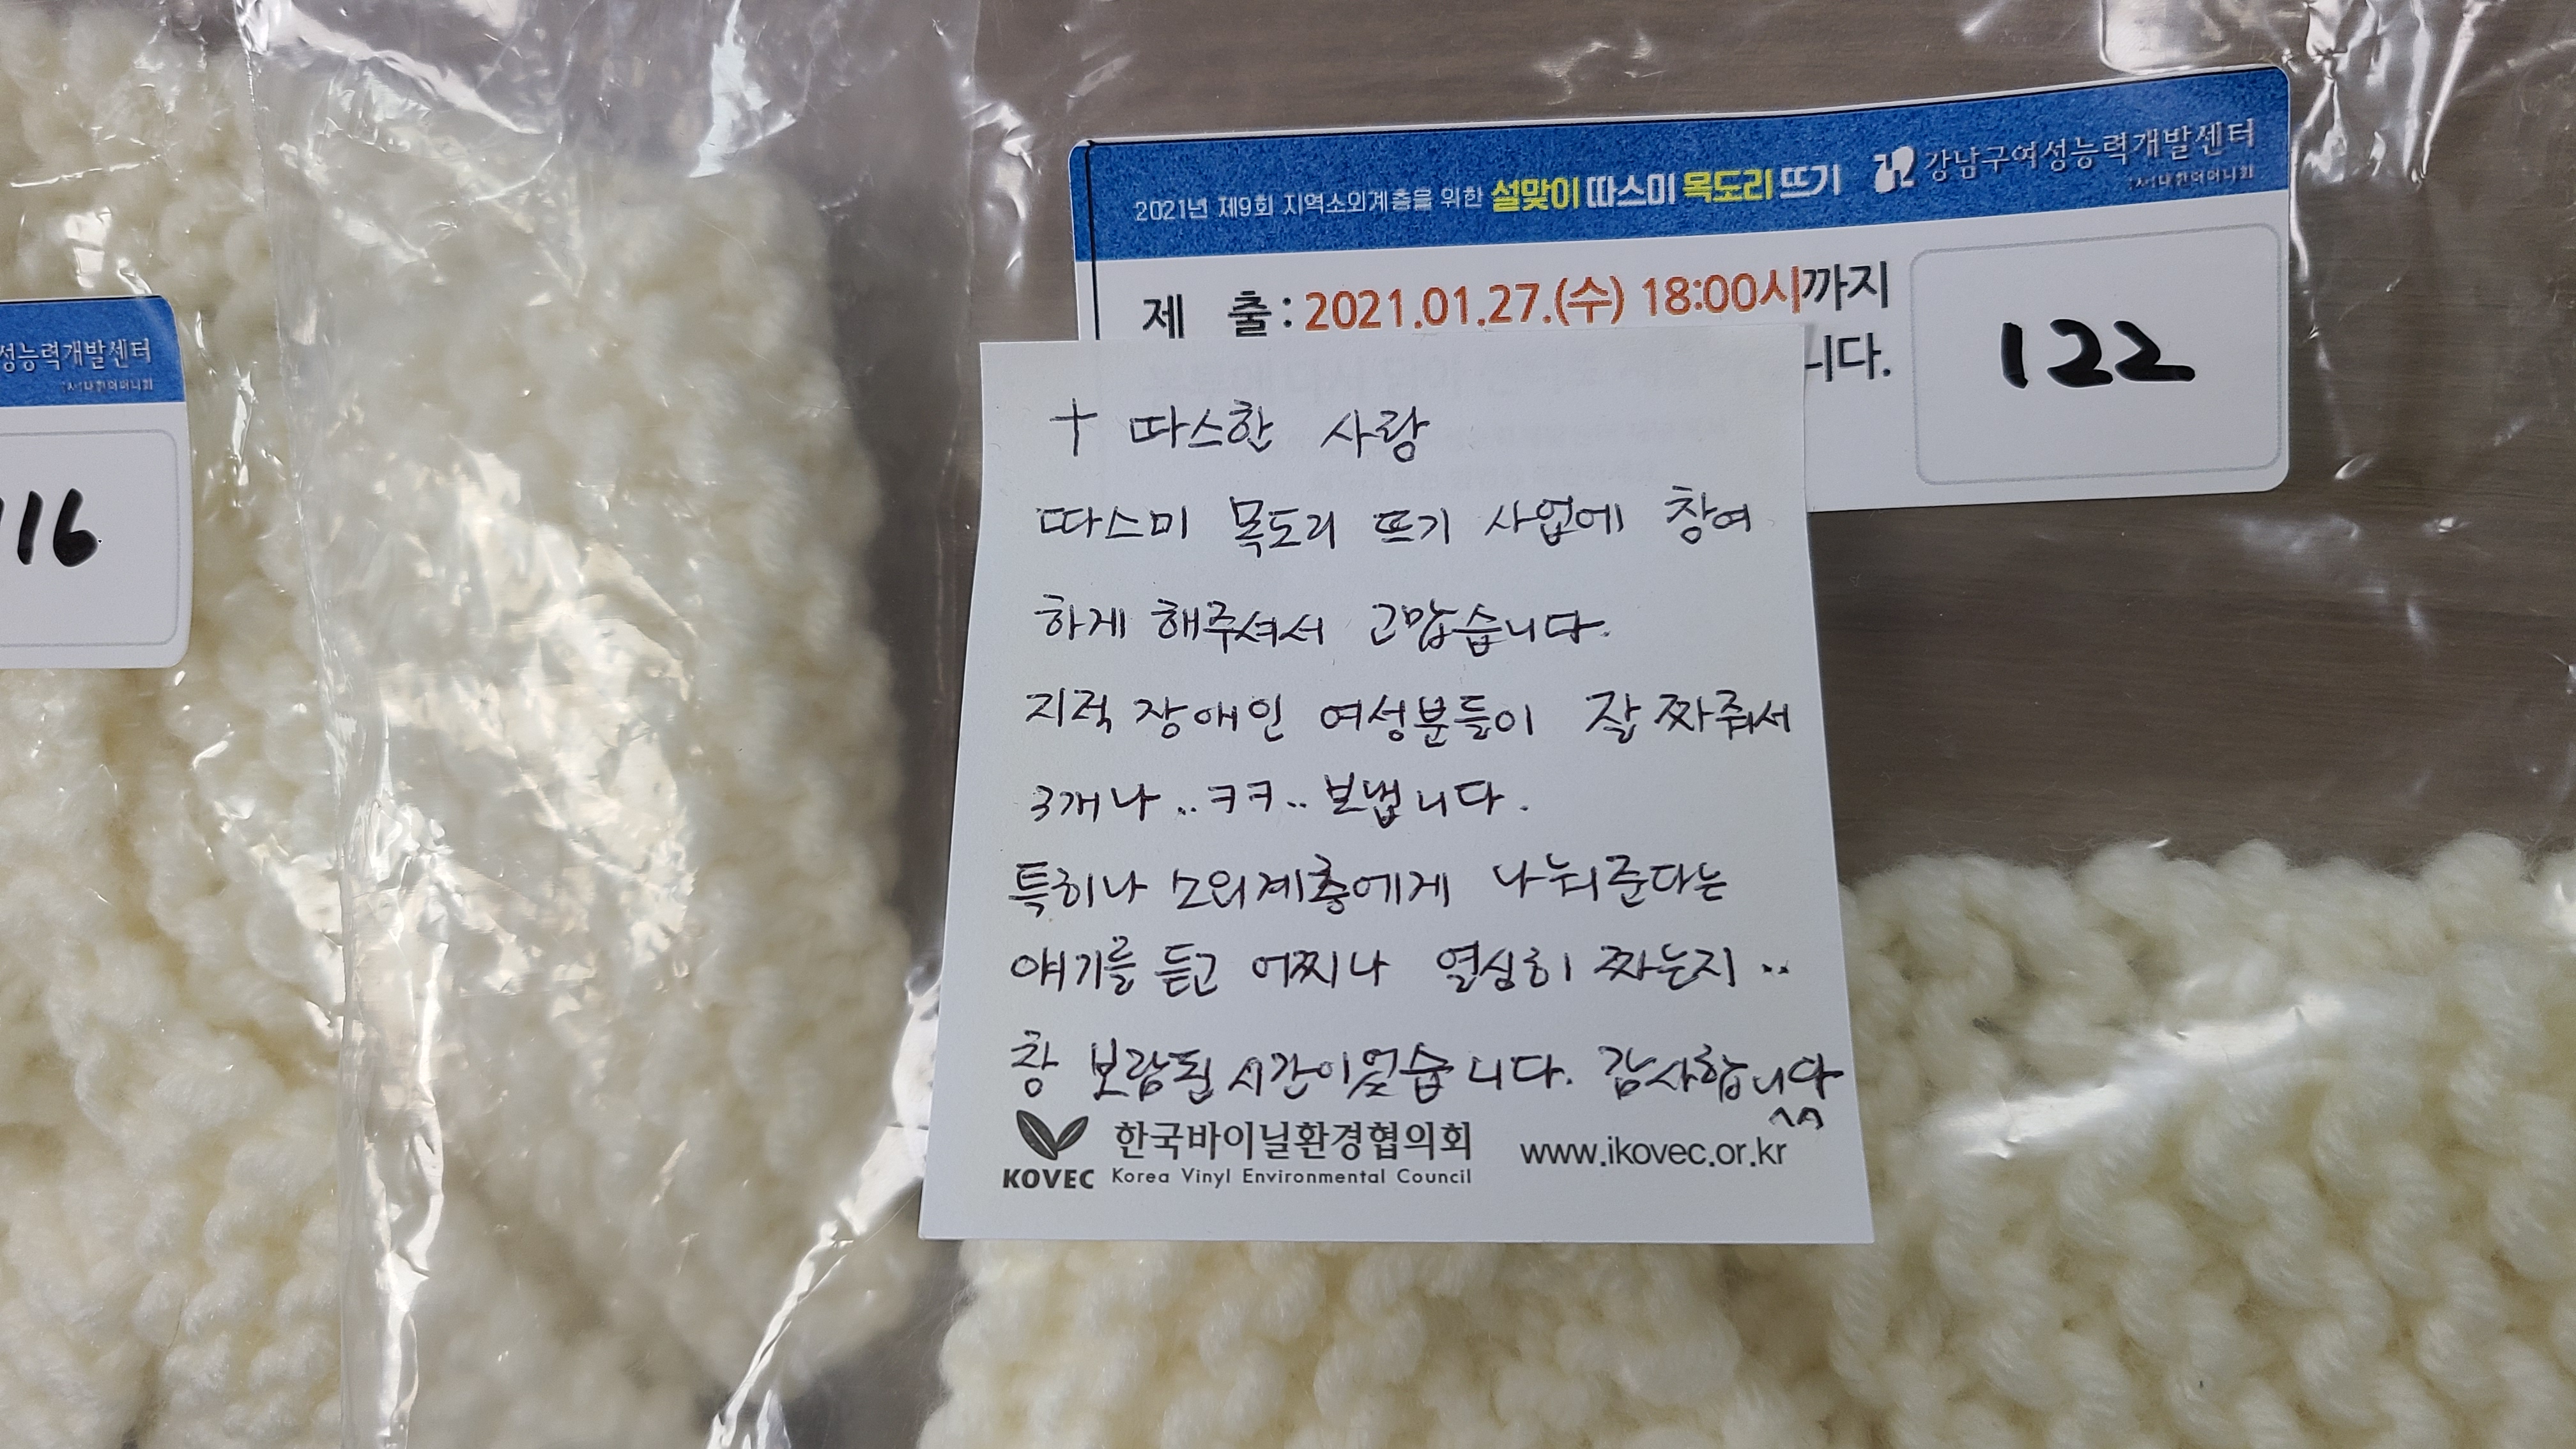 2021년 제9회 지역소외계층을 위한 설맞이 따스미 목도리 뜨기 강남구여성능력개발센터
(사)대한어머니회
제 출 : 2021.01.27.(수) 18:00시까지
니다.
122
성능력개발센터
(사)대한어머니회
116
† 따스한 사랑
따스미 목도리 뜨기 사업에 참여
하게 해주셔서 고맙습니다.
지적 장애인 여성분들이 잘 짜줘서
3개나..ㅋㅋ.. 보냅니다.
특히나 소외계층에게 나눠준다는
얘기를 듣고 어찌나 열심히 짜는지..
참 보람된 시간이었습니다. 감사합니다
^^
한국바이닐환경협의회 www.ikovec.or.kr
KOVEC Korea Vinyl Environmental Council